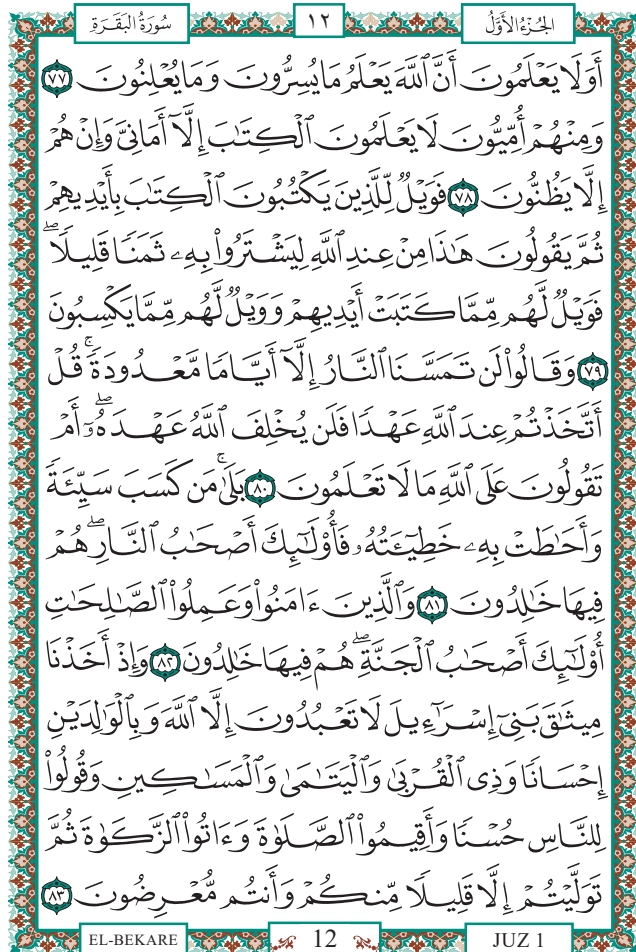 الجُزْءُ الأَوَّلُ
١٢
سُورَةُ البَقَرَةِ
أَوَلَا يَعْلَمُونَ أَنَّ ٱللَّهَ يَعْلَمُ مَا يُسِرُّونَ وَمَا يُعْلِنُونَ ٧٧
وَمِنْهُمْ أُمِّيُّونَ لَا يَعْلَمُونَ ٱلْكِتَٰبَ إِلَّآ أَمَانِىَّ وَإِنْ هُمْ
إِلَّا يَظُنُّونَ ٧٨ فَوَيْلٌ لِّلَّذِينَ يَكْتُبُونَ ٱلْكِتَٰبَ بِأَيْدِيهِمْ
ثُمَّ يَقُولُونَ هَٰذَا مِنْ عِندِ ٱللَّهِ لِيَشْتَرُوا۟ بِهِۦ ثَمَنًا قَلِيلًا ۖ
فَوَيْلٌ لَّهُم مِّمَّا كَتَبَتْ أَيْدِيهِمْ وَوَيْلٌ لَّهُم مِّمَّا يَكْسِبُونَ
٧٩ وَقَالُوا۟ لَن تَمَسَّنَا ٱلنَّارُ إِلَّآ أَيَّامًا مَّعْدُودَةً ۚ قُلْ
أَتَّخَذْتُمْ عِندَ ٱللَّهِ عَهْدًا فَلَن يُخْلِفَ ٱللَّهُ عَهْدَهُۥٓ ۖ أَمْ
تَقُولُونَ عَلَى ٱللَّهِ مَا لَا تَعْلَمُونَ ٨٠ بَلَىٰ ۚ مَن كَسَبَ سَيِّئَةً
وَأَحَٰطَتْ بِهِۦ خَطِيٓـَٔتُهُۥ فَأُو۟لَٰٓئِكَ أَصْحَٰبُ ٱلنَّارِ ۖ هُمْ
فِيهَا خَٰلِدُونَ ٨١ وَٱلَّذِينَ ءَامَنُوا۟ وَعَمِلُوا۟ ٱلصَّٰلِحَٰتِ
أُو۟لَٰٓئِكَ أَصْحَٰبُ ٱلْجَنَّةِ ۖ هُمْ فِيهَا خَٰلِدُونَ ٨٢ وَإِذْ أَخَذْنَا
مِيثَٰقَ بَنِىٓ إِسْرَٰٓءِيلَ لَا تَعْبُدُونَ إِلَّا ٱللَّهَ وَبِٱلْوَٰلِدَيْنِ
إِحْسَانًا وَذِى ٱلْقُرْبَىٰ وَٱلْيَتَٰمَىٰ وَٱلْمَسَٰكِينِ وَقُولُوا۟
لِلنَّاسِ حُسْنًا وَأَقِيمُوا۟ ٱلصَّلَوٰةَ وَءَاتُوا۟ ٱلزَّكَوٰةَ ثُمَّ
تَوَلَّيْتُمْ إِلَّا قَلِيلًا مِّنكُمْ وَأَنتُم مُّعْرِضُونَ ٨٣
EL-BEKARE
12
JUZ 1